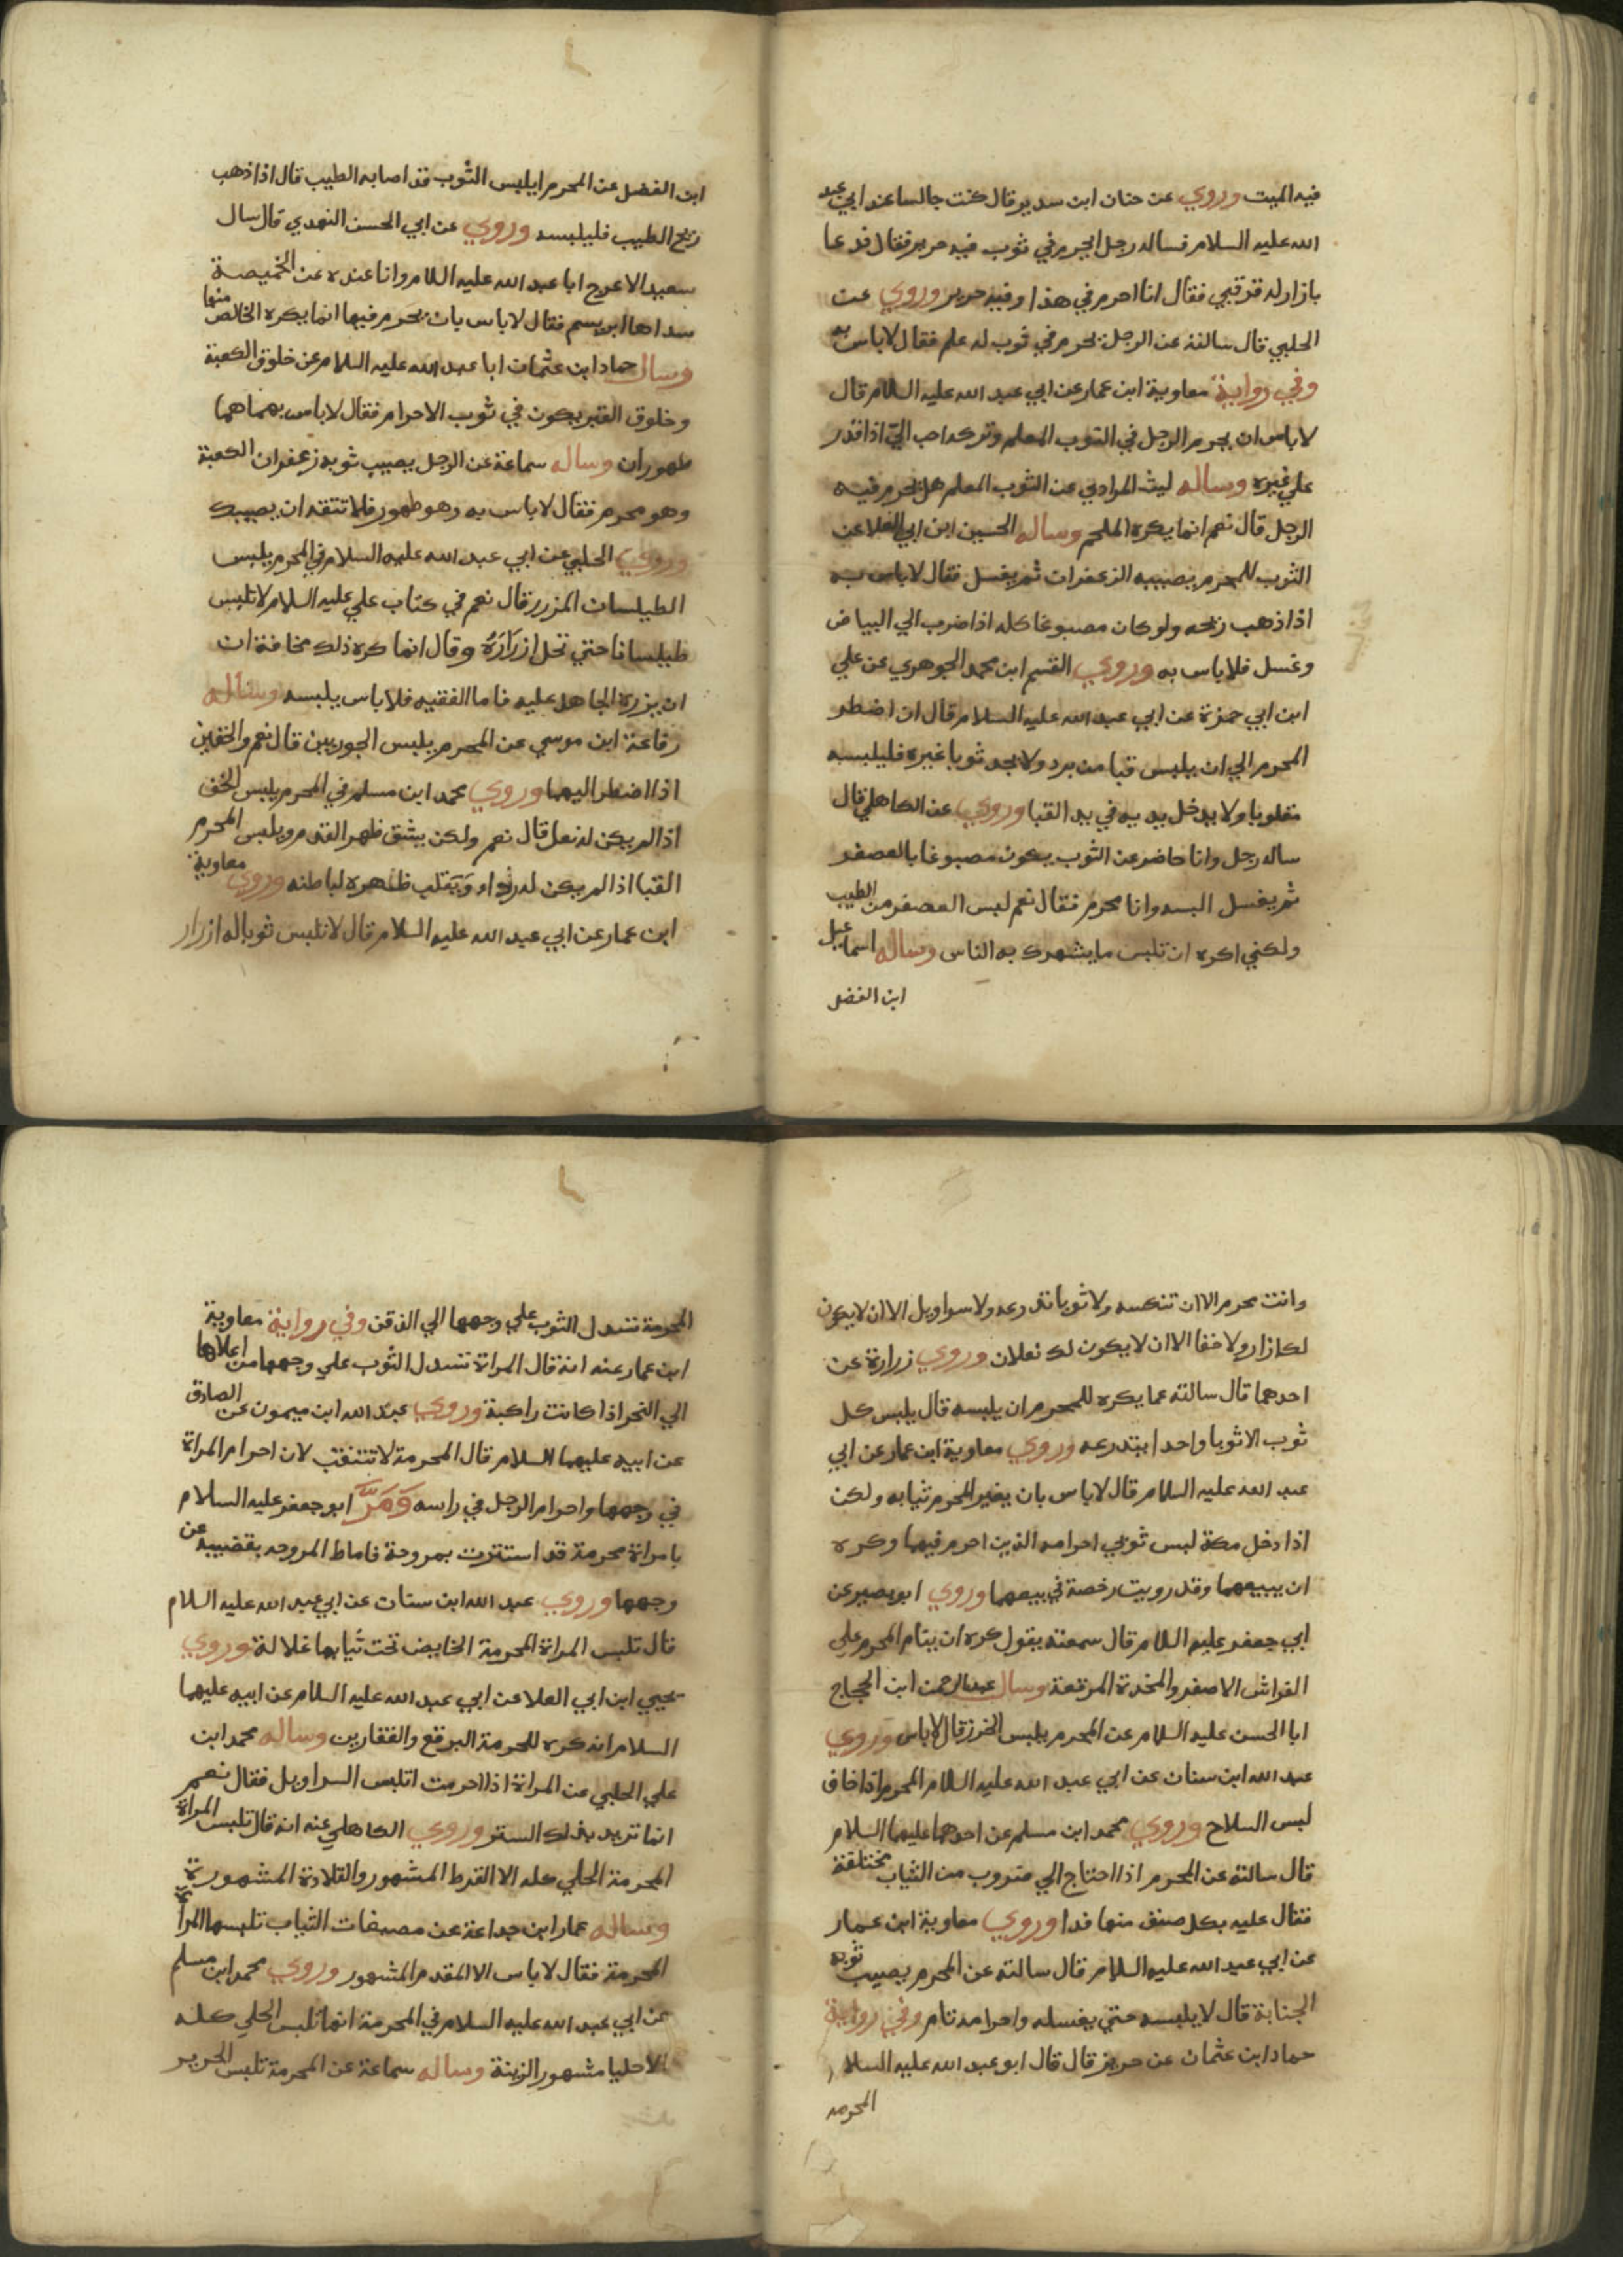 فيه الميت وروي عن حنان ابن سدير قال كنت جالسا عند ابي عبد
الله عليه السلام فساله رجل ايحرم في ثوب فيه حرير فقال فدعا
بازار له قرقبي فقال انا احرم في هذا وفيه حرير وروي عن
الحلبي قال سالته عن الرجل يحرم في ثوب له علم فقال لاباس به
وفي رواية معاوية ابن عمار عن ابي عبد الله عليه السلام قال
لاباس ان يحرم الرجل في الثوب المعلم وتركه احب الي اذا قدر
علي غيره وساله ليث المرادي عن الثوب المعلم هل يحرم فيه
الرجل قال نعم انما يكره الملحم وساله الحسين ابن ابي العلا عن
الثوب للمحرم يصيبه الزعفران ثم يغسل فقال لاباس به
اذا ذهب ريحه ولو كان مصبوغا كله اذا ضرب الي البياض
وغسل فلاباس به وروي القسم ابن محمد الجوهري عن علي
ابن ابي حمزة عن ابي عبد الله عليه السلام قال ان اضطر
المحرم الي ان يلبس قبا من برد ولا يجد ثوبا غيره فليلبسه
مقلوبا ولا يدخل يديه في يد القبا وروي عن الكاهلي قال
ساله رجل وانا حاضر عن الثوب يكون مصبوغا بالعصفر
ثم يغسل البسه وانا محرم فقال نعم ليس العصفر من الطيب
ولكني اكره ان تلبس ما يشهرك به الناس وساله اسماعيل
ابن الفضل
ابن الفضل عن المحرم ايلبس الثوب قد اصابه الطيب قال اذا ذهب
ريح الطيب فليلبسه وروي عن ابي الحسن النهدي قال سال
سعيد الاعرج ابا عبد الله عليه السلام وانا عنده عن الخميصة
سداها ابريسم فقال لاباس بان يحرم فيها انما يكره الخالص منها
وسال حماد ابن عثمان ابا عبد الله عليه السلام عن خلوق الكعبة
وخلوق القبر يكون في ثوب الاحرام فقال لاباس بهما هما
طهوران وساله سماعة عن الرجل يصيب ثوبه زعفران الكعبة
وهو محرم فقال لاباس به وهو طهور فلا تتقه ان يصيبك
وروي الحلبي عن ابي عبد الله عليه السلام في المحرم يلبس
الطيلسان المزرر قال نعم في كتاب علي عليه السلام لا تلبس
طيلسانا حتي تحل ازراره وقال انما كره ذلك مخافة ان
ان يزره الجاهل عليه فاما الفقيه فلاباس يلبسه وساله
رفاعة ابن موسي عن المحرم يلبس الجوربين قال نعم والخفين
اذا اضطر اليهما وروي محمد ابن مسلم في المحرم يلبس الخف
اذا لم يكن له نعل قال نعم ولكن يشق ظهر القدم ويلبس المحرم
القبا اذا لم يكن له رداء ويقلب ظاهره لباطنه وروي معاوية
ابن عمار عن ابي عبد الله عليه السلام قال لا تلبس ثوبا له ازرار
وانت محرم الا ان تنكسه ولا ثوبا تدرعه ولا سراويل الا ان لا يكون
لك ازار ولا خفا الا ان لا يكون لك نعلان وروي زرارة عن
احدهما قال سالته عما يكره للمحرم ان يلبسه قال يلبس كل
ثوب الا ثوبا واحدا يتدرعه وروي معاوية ابن عمار عن ابي
عبد الله عليه السلام قال لاباس بان يغير المحرم ثيابه ولكن
اذا دخل مكة لبس ثوبي احرامه الذين احرم فيهما وكره
ان يبيعهما وقد رويت رخصة في بيعهما وروي ابو بصير عن
ابي جعفر عليه السلام قال سمعته يقول كره ان ينام المحرم علي
الفراش الاصفر والمخدة المرتفعة وسال عبد الرحمن ابن الحجاج
ابا الحسن عليه السلام عن المحرم يلبس الخز قال لاباس وروي
عبد الله ابن سنان عن ابي عبد الله عليه السلام المحرم اذا خاف
لبس السلاح وروي محمد ابن مسلم عن احدهما عليهما السلام
قال سالته عن المحرم اذا احتاج الي ضروب من الثياب مختلفة
فقال عليه بكل صنف منها فدا وروي معاوية ابن عمار
عن ابي عبد الله عليه السلام قال سالته عن المحرم يصيب ثوبه
الجنابة قال لا يلبسه حتي يغسله واحرامه تام وفي رواية
حماد ابن عثمان عن حريز قال قال ابو عبد الله عليه السلام
المحرمه
المحرمة تسدل الثوب علي وجهها الي الذقن وفي رواية معاوية
ابن عمار عنه انه قال المراة تسدل الثوب علي وجهها من اعلاها
الي النحر اذا كانت راكبة وروي عبد الله ابن ميمون عن الصادق
عن ابيه عليهما السلام قال المحرمة لا تتنقب لان احرام المراة
في وجهها واحرام الرجل في راسه وَمَرَّ ابو جعفر عليه السلام
بامراة محرمة قد استترت بمروحة فاماط المروحه بقضيبه عن
وجهها وروي عبد الله ابن سنان عن ابي عبد الله عليه السلام
قال تلبس المراة المحرمة الحايض تحت ثيابها غلالة وروي
يحيي ابن ابي العلا عن ابي عبد الله عليه السلام عن ابيه عليهما
السلام انه كره للمحرمة البرقع والقفازين وساله محمد ابن
علي الحلبي عن المراة اذا احرمت اتلبس السراويل فقال نعم
انما تريد بذلك الستر وروي الكاهلي عنه انه قال تلبس المراة
المحرمة الحلي كله الا القرط المشهور والقلادة المشهورة
وساله عمار ابن جداعة عن مصبغات الثياب تلبسها المراة
المحرمة فقال لاباس الا المقدم المشهور وروي محمد ابن مسلم
عن ابي عبد الله عليه السلام في المحرمة انها تلبس الحلي كله
الا حليا مشهور الزينة وساله سماعة عن المحرمة تلبس الحرير